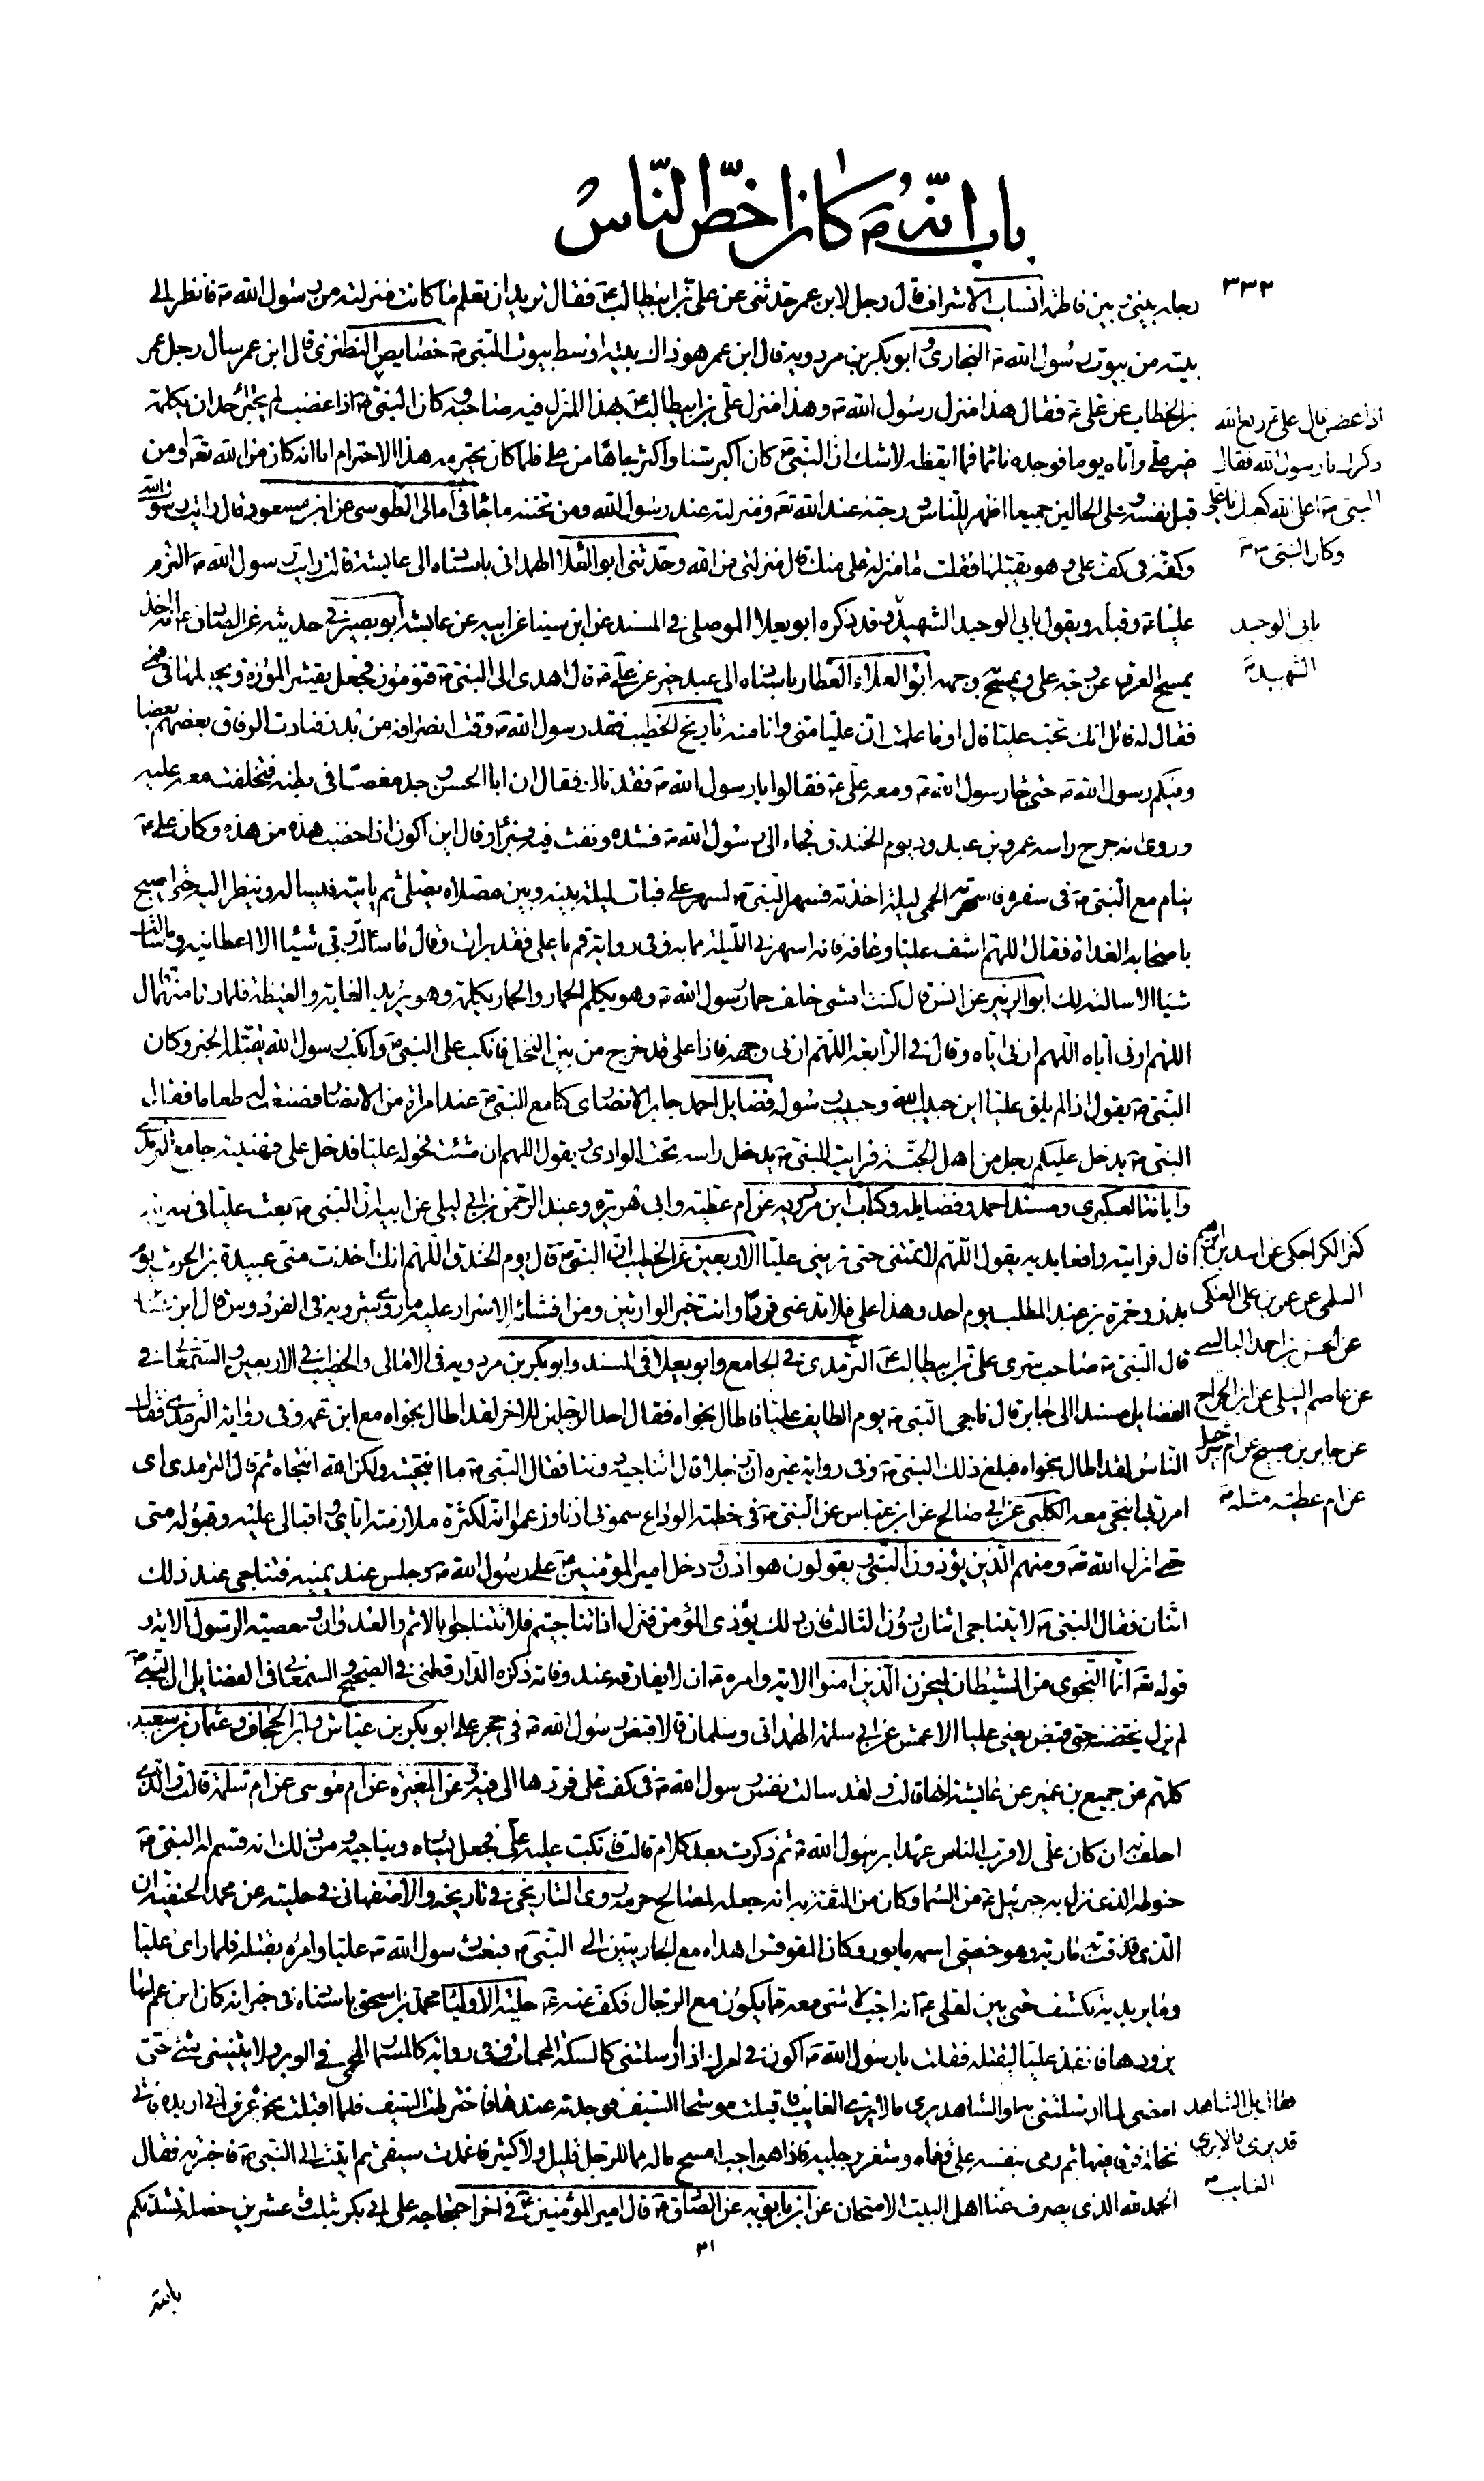 باب انّه ص كان اخصّ النّاس
٣٣٢
رجاء بيني وبين فاطمة انساب الاشراف قال رجل لابن عمر حدثنى عن على بن ابيطالب ع فقال تريد ان تعلم ما كانت منزلته من رسول الله ص فانظر الى
بيته من بيوت رسول الله ص البخارى وابو بكر بن مردويه قال ابن عمر هو ذاك بيته اوسط بيوت النبى ص خصايص النطنزى قال ابن عمر سال رجل عمر
بن الخطاب عن على ع فقال هذا منزل رسول الله ص وهذا منزل على بن ابيطالب ع بهذا المنزل فيه صاحبه وكان النبى ص اذا غضب لم يجترئ احد ان يكلمه
غير على واتاه يوما فوجده نائما فما ايقظه لاشك ان النبى ص كان اكبر سنا واكثر جاها من على فلما كان يحترمه هذا الاحترام اما انه كان من الله تعه او من
قبل نفسه وعلى الحالين جميعا اظهر للناس درجته عند الله تعه ومنزلته عند رسول الله ومن تحننه ما جا فى امالى الطوسى عن ابن مسعود قال رايت رسول الله
وكفه فى كف على وهو يقبلها فقلت ما منزلة على منك قال منزلتى من الله وحدثنى ابو العلا الهمدانى باسناده الى عايشة قالت رايت رسول الله ص التزم
عليا ع وقبله ويقول بابى الوحيد الشهيد وقد ذكره ابو يعلا الموصلى فى المسند عن ابن مينا عن ابيه عن عايشه ابو بصير فى حديثه عن الصادق ع انه اخذ
يمسح العرق عن وجه على ويمسح به وجهه ابو العلاء العطار باسناده الى عبد خير عن على ع قال اهدى الى النبى ص قنو موز فجعل يقشر الموزة ويجعلها فى فمى
فقال له قائل انك تحب عليا قال او ما علمت ان عليا منى وانا منه تاريخ الخطيب فقد رسول الله ص وقت انصرافه من بدر فنادت الرفاق بعضهم بعضا
وفيكم رسول الله ص حتى جا رسول الله ص ومعه على ع فقالوا يا رسول الله ص فقدناك فقال ان ابا الحسن وجد مغصا فى بطنه فتخلفت معه عليه
وروى انه جرح راسه عمرو بن عبد ود يوم الخندق فجاء الى رسول الله ص فشده ونفث فيه فبرئ وقال اين اكون اذا خضبت هذه من هذه وكان على ع
ينام مع النبى ص فى سفره فاسهرته الحمى ليلة اخذته فسهر النبى ص لسهر على فبات ليلته بينه وبين مصلاه يصلى ثم ياتيه فيساله وينظر اليه حتى اصبح
باصحابه الغداة فقال اللهم اشف عليا وعافه فانه اسهرنى الليلة مما به وفى رواية قم يا على فقد برات وقال ما سالت ربى شيئا الا اعطانيه وما سالت
شيئا الا سالته لك ابو الزبير عن انس قال كنت امشى خلف حمار رسول الله ص وهو يكلم الحمار والحمار يكلمه وهو يريد الغابة والغيضة فلما دنا منهما قال
اللهم ارنى اياه اللهم ارنى اياه وقال فى الرابعة اللهم ارنى وجهه فاذا على قد خرج من بين النخل فانكب على النبى ص وانكب رسول الله يقبله الخبر وكان
النبى ص يقول اذا لم يلق عليا اين حبيب الله وحبيب رسوله فضايل احمد جابر الانصارى كنا مع النبى ص عند امراة من الانصار فصنعت له طعاما فقال
النبى ص يدخل عليكم رجل من اهل الجنة فرايت النبى ص يدخل راسه تحت الوادى ويقول اللهم ان شئت جعلته عليا فدخل على فهنيته جامع الترمذى
وابانة العكبرى ومسند احمد وفضايله وكتاب ابن مردويه عن ام عطيه وابى هريرة وعبد الرحمن بن ابى ليلى عن ابيه ان النبى ص بعث عليا فى سرية
قال فرايته رافعا يديه يقول اللهم لا تمتنى حتى ترينى عليا الاربعين عن الخطيب ان النبى ص قال يوم الخندق اللهم انك اخذت منى عبيدة بن الحرث يوم
بدر وحمزة بن عبد المطلب يوم احد وهذا على فلا تدعنى فردا وانت خير الوارثين ومن افشاء الاسرار عليه ما روى شيرويه فى الفردوس قال ابن عباس
قال النبى ص صاحب سرى على بن ابيطالب ع الترمذى فى الجامع وابو يعلا فى المسند وابو بكر بن مردويه فى الامالى والخطيب فى الاربعين والسمعانى فى
الفضايل مسندا الى جابر قال ناجى النبى ص يوم الطايف عليا فاطال نجواه فقال احد الرجلين للاخر لقد اطال نجواه مع ابن عمه وفى رواية الترمذى فقال
الناس لقد اطال نجواه فبلغ ذلك النبى ص وفى رواية غيره ان رجلا قال اتناجيه دوننا فقال النبى ص ما انتجيته ولكن الله انتجاه ثم قال الترمذى اى
امر ربى انتجى معه الكلبى عن ابى صالح عن ابن عباس عن النبى ص فى خطبة الوداع سمونى اذنا وزعموا انه لكثرة ملازمته اياى واقبالى عليه وقبوله منى
حتى انزل الله تعه ومنهم الذين يؤذون النبى ويقولون هو اذن ودخل امير المؤمنين ع على رسول الله ص وجلس عند يمينه فتناجى عند ذلك
اثنان فقال النبى ص لا يتناجى اثنان دون الثالث فان ذلك يؤذى المؤمن فنزل اذا تناجيتم فلا تتناجوا بالاثم والعدوان ومعصية الرسول الاية و
قوله تعه انما النجوى من الشيطان ليحزن الذين امنوا الاية وامره ص ان لا يفارقه عند وفاته ذكره الدارقطنى فى الصحيح والسمعانى فى الفضايل ان النبى ص
لم يزل يحتضنه حتى قبض يعنى عليا الاعمش عن ابى سلمة الهمدانى وسلمان قالا قبض رسول الله ص فى حجر على ابو بكر بن عياش وابن الجحاف وعثمان بن سعيد
كلهم عن جميع بن عمير عن عايشة انها قالت ولقد سالت نفس رسول الله ص فى كف على فردها الى فيه وعن المغيره عن ام موسى عن ام سلمة قالت والذى
احلف به ان كان على لاقرب الناس عهدا برسول الله ص ثم ذكرت بعد كلام قالت فانكب عليه على فجعل يساره ويناجيه ومن ذلك انه قسم له النبى ص
حنوطه الذى نزل به جبرئيل ع من السما وكان من الثقة به انه جعله لمصالح حرمه روى التاريخى فى تاريخه والاصفهانى فى حليته عن محمد الحنفية ان
الذى قذفت به مارية وهو خصى اسمه مابور وكان المقوقس اهداه مع الجاريتين الى النبى ص فبعث رسول الله ص عليا وامره بقتله فلما راى عليا
وما يريد به تكشف حتى بين لعلى ع انه اجب لا شى معه مما يكون مع الرجال فكف عنه ع حلية الاوليا محمد بن اسحق باسناده فى خبر انه كان ابن عم لها
يزورها فانفذ عليا ليقتله فقلت يا رسول الله ص اكون فى امرك اذا ارسلتنى كالسكة المحماة وفى رواية كالمسمار المحمى فى الوبر ولا يثنينى شئ حتى
امضى لما ارسلتنى به او الشاهد يرى ما لا يرى الغائب فاقبلت موشحا السيف فوجدته عندها فاخترطت السيف فلما اقبلت نحوه عرف انى اريده فاتى
نخلة فرقى فيها ثم رمى بنفسه على قفاه وشغر برجليه فاذا هو اجب امسح ماله مما للرجل قليل ولا كثير فاغمدت سيفى ثم اتيت الى النبى ص فاخبرته فقال
الحمد لله الذى يصرف عنا اهل البيت الامتحان عن ابن بابويه عن الصادق ع قال امير المؤمنين ع فى اخر احتجاجه على ابى بكر بثلث وعشرين خصلة نشدتكم
٣١
بالله
اذا غضب قال على ع
ذكرك يا رسول الله فقال
النبى ص اعلى الله كعبك يا على
وكان النبى ص
بابى الوحيد
الشهيد
كنز الكراجكى عن اسد بن ابراهيم
السلمى عن عمر بن على العتكى
عن الحسن بن احمد البالسى
عن عاصم النبيل عن ابى الجراح
عن جابر بن صبيح عن ام شرحبيل
عن ام عطيه مثله
فقال بل الشاهد
قد يرى ما لا يرى
الغايب